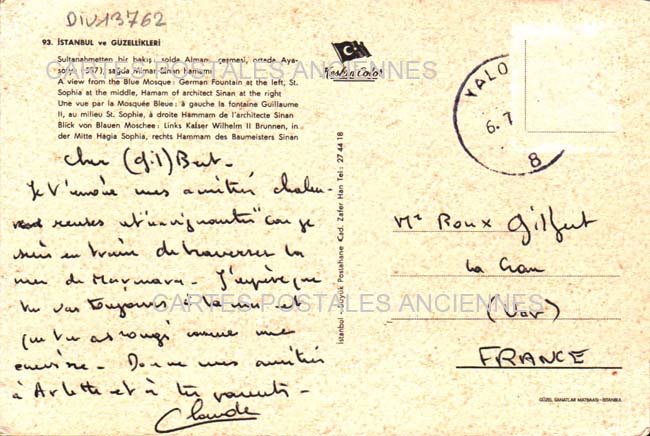 DIV13762
93. İSTANBUL ve GÜZELLİKLERİ
Sultanahmetten bir bakış: solda Alman çeşmesi, ortada Aya-
sofya (537), sağda Mimar Sinan hamamı
A view from the Blue Mosque: German Fountain at the left, St.
Sophia at the middle, Hamam of architect Sinan at the right
Une vue par la Mosquée Bleue: à gauche la fontaine Guillaume
II, au milieu St. Sophie, à droite Hammam de l'architecte Sinan
Blick von Blauen Moschee: Links Kaiser Wilhelm II Brunnen, in
der Mitte Hagia Sophia, rechts Hammam des Baumeisters Sinan
CARTES POSTALES ANCIENNES
Keskin Color
YALO
6.7
8
Cher (Gil)Bert.
Je t'envoie mes amitiés chaleu-
reuses et car je
suis en train de traverser la
mer de Marmara. J'espère que
tu vas toujours à la mer et
que tu as rougi comme une
cerise. Donne mes amitiés
à Arlette et à tes parents.
Claude
İstanbul - Büyük Postahane Cad. Zafer Han Tel: 27 44 18
Mr Roux Gilbert
La Crau
(Var)
FRANCE
CARTES POSTALES ANCIENNES
GÜZEL SANATLAR MATBAASI - İSTANBUL